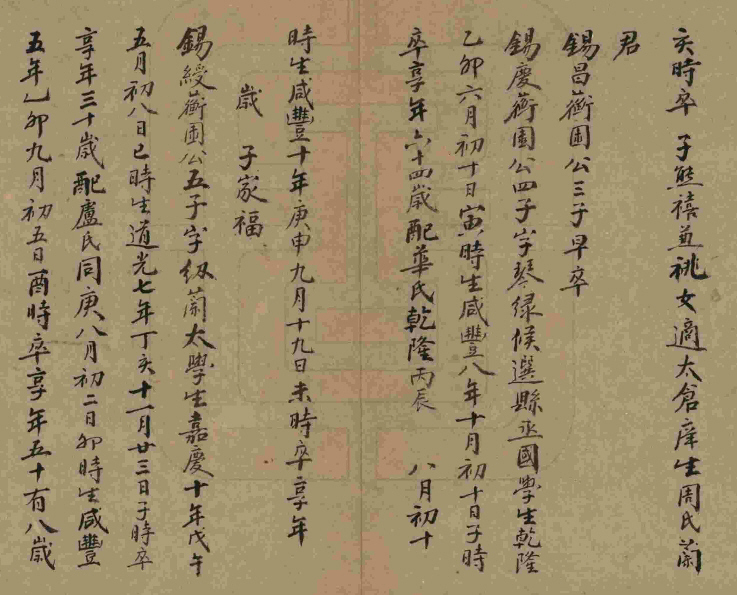 亥時卒　子熊禧兼祧女適太倉庠生周氏蘭
君
錫昌蘅圃公三子早卒
錫慶蘅圃公四子字琴緑候選縣丞國學生乾隆
乙卯六月初十日寅時生咸豐八年十月初十日子時
卒享年六十四歲配華氏乾隆丙辰　八月初十
時生咸豐十年庚申九月十九日未時卒享年
歲　子家福
錫綬蘅圃公五子字紉蘭太學生嘉慶十年戊午
五月初八日巳時生道光七年丁亥十一月廿三日子時卒
享年三十歲配盧氏同庚八月初二日卯時生咸豐
五年乙卯九月初五日酉時卒享年五十有八歲